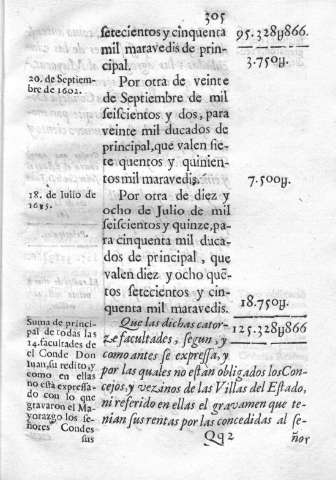 305
setecientos y cinquenta 95.328y866.
mil maravedis de prin-
cipal. 3.750y.
20. de Septiem-
bre de 1602.
Por otra de veinte
de Septiembre de mil
seiscientos y dos, para
veinte mil ducados de
principal, que valen sie-
te quentos y quinien-
tos mil maravedis. 7.500y.
18. de Iulio de
1615.
Por otra de diez y
ocho de Julio de mil
seiscientos y quinze, pa-
ra cinquenta mil duca-
dos de principal, que
valen diez y ocho quẽ-
tos setecientos y cin-
quenta mil maravedis. 18.750y.
125.328y866
Suma de princi-
pal de todas las
14. facultades de
el Conde Don
Iuan, su redito, y
como en ellas
no està expressa-
do con lo que
gravaron el Ma-
yorazgo los se-
ñores Condes
sus
Que las dichas cator-
ze facultades, segun, y
como antes se expressa, y
por las quales no estàn obligados los Con-
cejos, y vezinos de las Villas del Estado,
ni referido en ellas el gravamen que te-
nian sus rentas por las concedidas al se-
Qq2 ñor